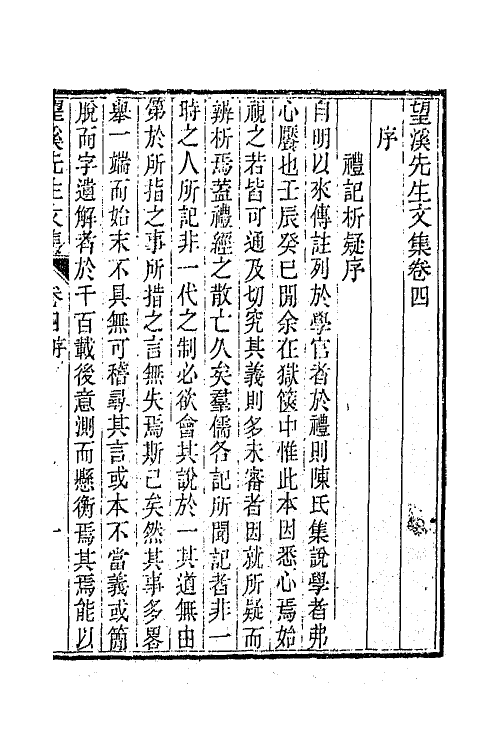 望溪先生文集卷四
序
禮記析疑序
自明以來傳註列於學官者於禮則陳氏集說學者弗
心饜也壬辰癸巳閒余在獄篋中惟此本因悉心焉始
視之若皆可通及切究其義則多未審者因就所疑而
辨析焉蓋禮經之散亡久矣羣儒各記所聞記者非一
時之人所記非一代之制必欲會其說於一其道無由
第於所指之事所措之言無失焉斯已矣然其事多畧
舉一端而始末不具無可稽尋其言或本不當義或簡
脫而字遺解者於千百載後意測而懸衡焉其焉能以
望溪先生文集 卷四序 一